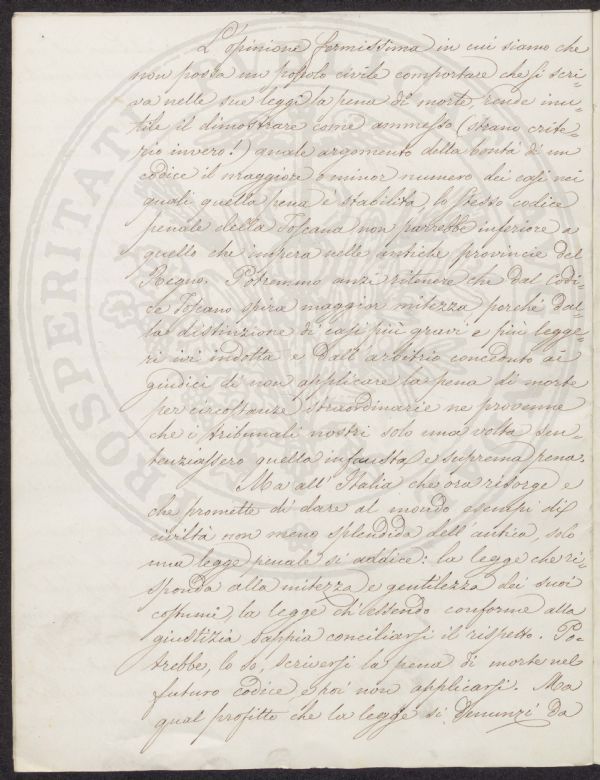 L'opinione fermissima in cui siamo che
non possa un popolo civile comportare che si scri-
va nelle sue leggi la pena di morte, rende inu-
tile il dimostrare come ammesso (strano crite-
rio invero!) quale argomento della bontà di un
codice il maggiore o minor numero dei casi nei
quali quella pena è stabilita, lo stesso codice
penale della Toscana non parrebbe inferiore a
quello che impera nelle antiche provincie del
Regno. Potremmo anzi ritenere che dal Codi-
ce Toscano spira maggior mitezza perché dal-
la distinzione di casi più gravi e più legge-
ri ivi indotta e dall'arbitrio conceduto ai
giudici di non applicare la pena di morte
per circostanze straordinarie ne provenne
che i tribunali nostri solo una volta sen-
tenziassero quella infausta e suprema pena.
Ma all'Italia che ora risorge e
che promette di dare al mondo esempi di
civiltà non meno splendida dell'antica, solo
una legge penale si addice: la legge che ri-
sponda alla mitezza e gentilezza dei suoi
costumi, la legge ch'essendo conforme alla
giustizia sappia conciliarsi il rispetto. Po-
trebbe, lo so, scriversi la pena di morte nel
futuro codice e poi non applicarsi. Ma
qual profitto che la legge si denunzi da
PROSPERITATI PUBLICAE